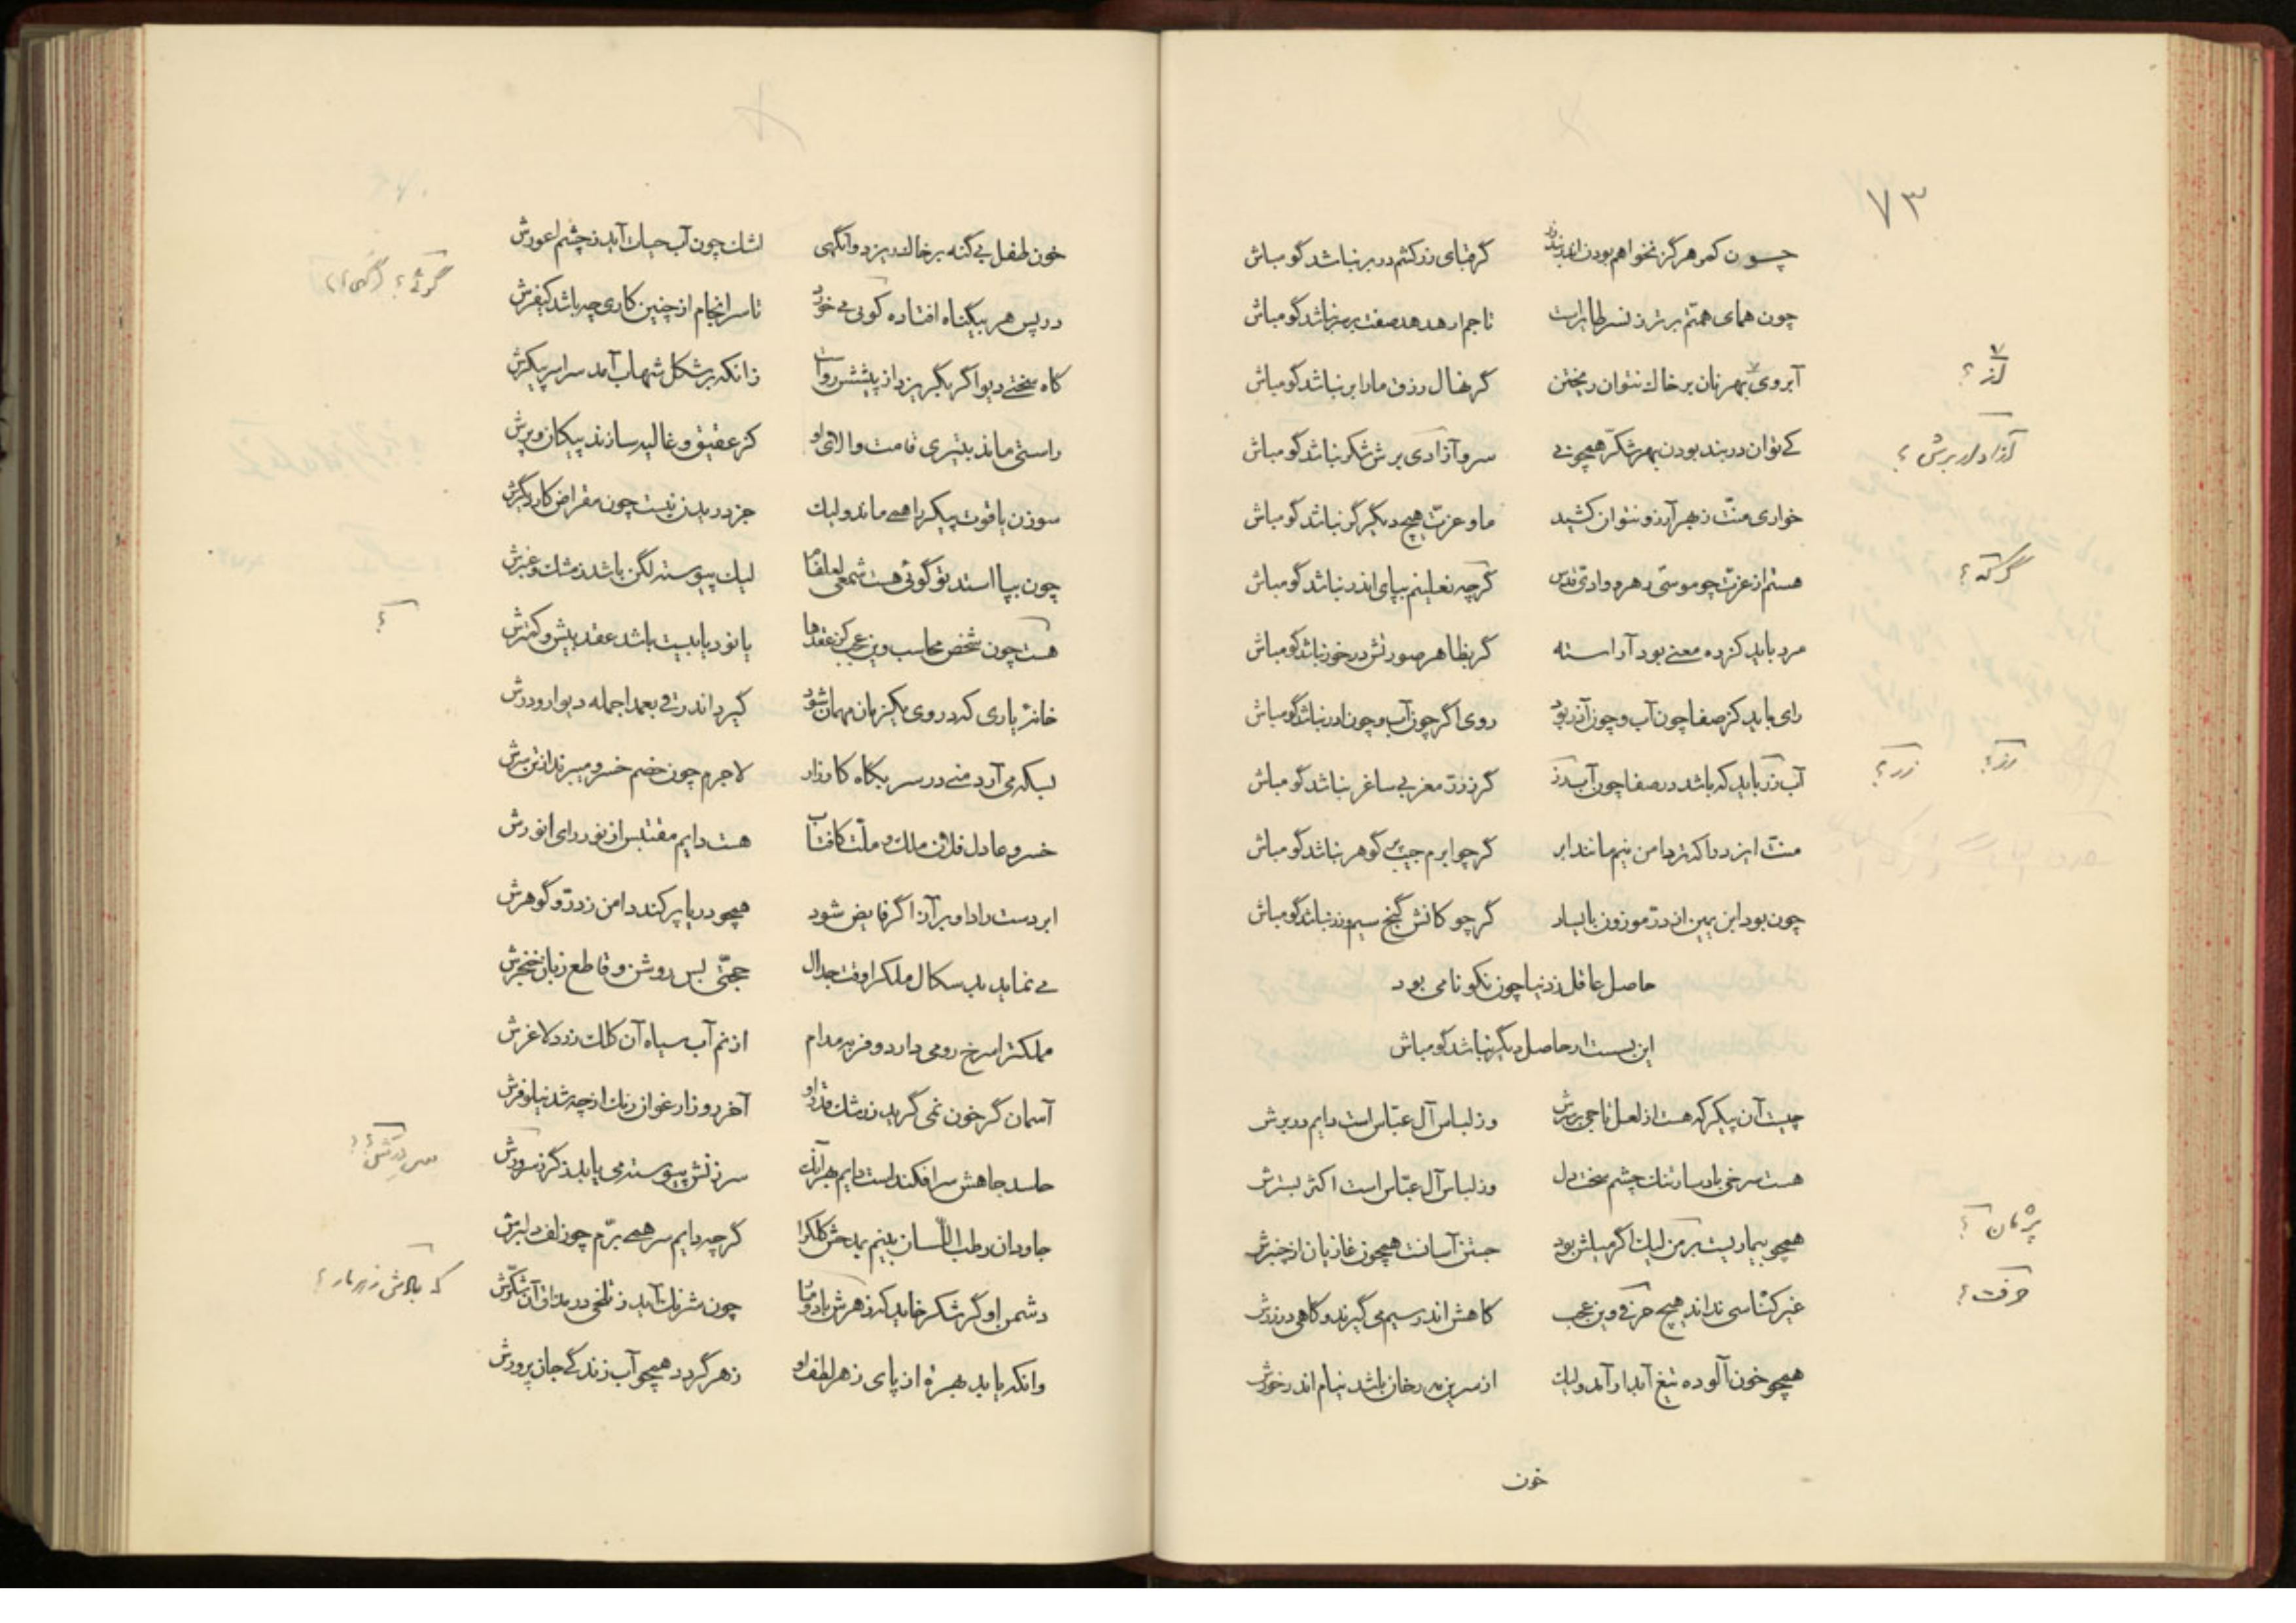 ۷۳
چون کمر هرگز نخواهم بودن اندر بند زر گر قبای زرکشم در بر نباشد گو مباش
چون همای همتم برتر ز نسر طایرست تاجم ار هدهد صفت بر سر نباشد گو مباش
آبروی بهر نان بر خاک نتوان ریختن گر نهال رزق ما را بر نباشد گو مباش
آز ؟
کی توان در بند بودن بهر شکر همچو نی سرو آزادی برش شکر نباشد گو مباش
آزاد ار برش ؟
خواری منت ز بهر آرزو نتوان کشید ما و عزت هیچ دیگر گر نباشد گو مباش
هستم از عزت چو موسی رهرو وادی قدس گرچه نعلینم بپای اندر نباشد گو مباش
گر که ؟
مرد باید کز ره معنی بود آراسته گر بظاهر صورتش در خور نباشد گو مباش
رای باید کز صفا چون آب و چون آذر بود روی اگر چون آب و چون آذر نباشد گو مباش
آب رز باید که باشد در صفا چون آب زر گر ز زر مغربی ساغر نباشد گو مباش
رز ؟ زر ؟
منت ایزد را که تر دامن نیم مانند ابر گر چو ابرم جیب پر گوهر نباشد گو مباش
چون بود ابن یمین از در موزون با یسار گر چو کانش گنج سیم و زر نباشد گو مباش
حاصل عاقل ز دنیا چون نکو نامی بود
این بست ار حاصل دیگر نباشد گو مباش
چیست آن پیکر که هست از لعل تاجی بر سرش وز لباس آل عباس است دایم در برش
هست سرخی باد سار تنک چشم سخت دل وز لباس آل عباس است اکثر بسترش
همچو بیماریست بر من لیک اگر میلش بود جستن آسانست همچون غازیان از چنبرش
پژمان ؟
غیر کناسی نداند هیچ حرفی وین عجب کاهش اندر سیم می گیرند و کاهی در زرش
حرفت ؟
همچو خون آلوده تیغ آبدار آمد ولیک از سرین مه رخان باشد نیام اندر خورش
خون
خون طفل بی گنه بر خاک ریزد وانگهی اشک چون آب حیات آید ز چشم اعورش
در پس هر بیگناه افتاده کونی می خورد تا سرانجام از چنین کاری چه باشد کیفرش
گاه سختی دیو اگر بگریزد از پیشش رواست زانکه بر شکل شهاب آمد سراسر پیکرش
راستی ماند بتیری قامت والای او کز عقیق و غالیه سازند پیکان و پرش
سوزن یاقوت پیکر را همی ماند ولیک جز دریدن نیست چون مقراض کار دیگرش
چون بپا استد تو گوئی هست شمعی لعل فام لیک پیوسته لگن باشد ز مشک و عنبرش
هست چون شخص محاسب وین عجب کز عقدها یا نود یا بیست باشد عقد بیش و کمترش
؟
خانۀ یاری که در وی یک زمان مهمان شود گیرد اندر قی بعمدا جمله دیوار و درش
بسکه می آرد منی در سر بگاه کارزار لاجرم چون خصم خسرو میبرند از تن سرش
خسرو عادل فلان ملک و ملت کافتاب هست دایم مقتبس از نور رای انورش
ابر دست راد او بر آز اگر فایض شود همچو دریا پر کند دامن ز در و گوهرش
می نماید بد سگال ملک را وقت جدال حجتی بس روشن و قاطع زبان خنجرش
مملکت را سرخ رومی دارد و فربه مدام از نم آب سیاه آن کلک زرد لاغرش
آسمان گر خون نمی گرید ز رشک قدر او آخر روز ارغوان رنگ از چه شد نیلوفرش
حاسد جاهش سرافکند است دایم بهر آنک سرزنش پیوسته می یابد ز گرز سرورش
جاودان رطب اللسان بینم بمدحش کلک را گرچه دایم سر همی برم چو زلف دلبرش
دشمن او گر شکر خاید که زهرش باد و مار چون شرنگ آید ز تلخی در مذاق آن شکرش
وانکه یابد بهرۀ از پای زهر لطف او زهر گردد همچو آب زندگی جان پرورش